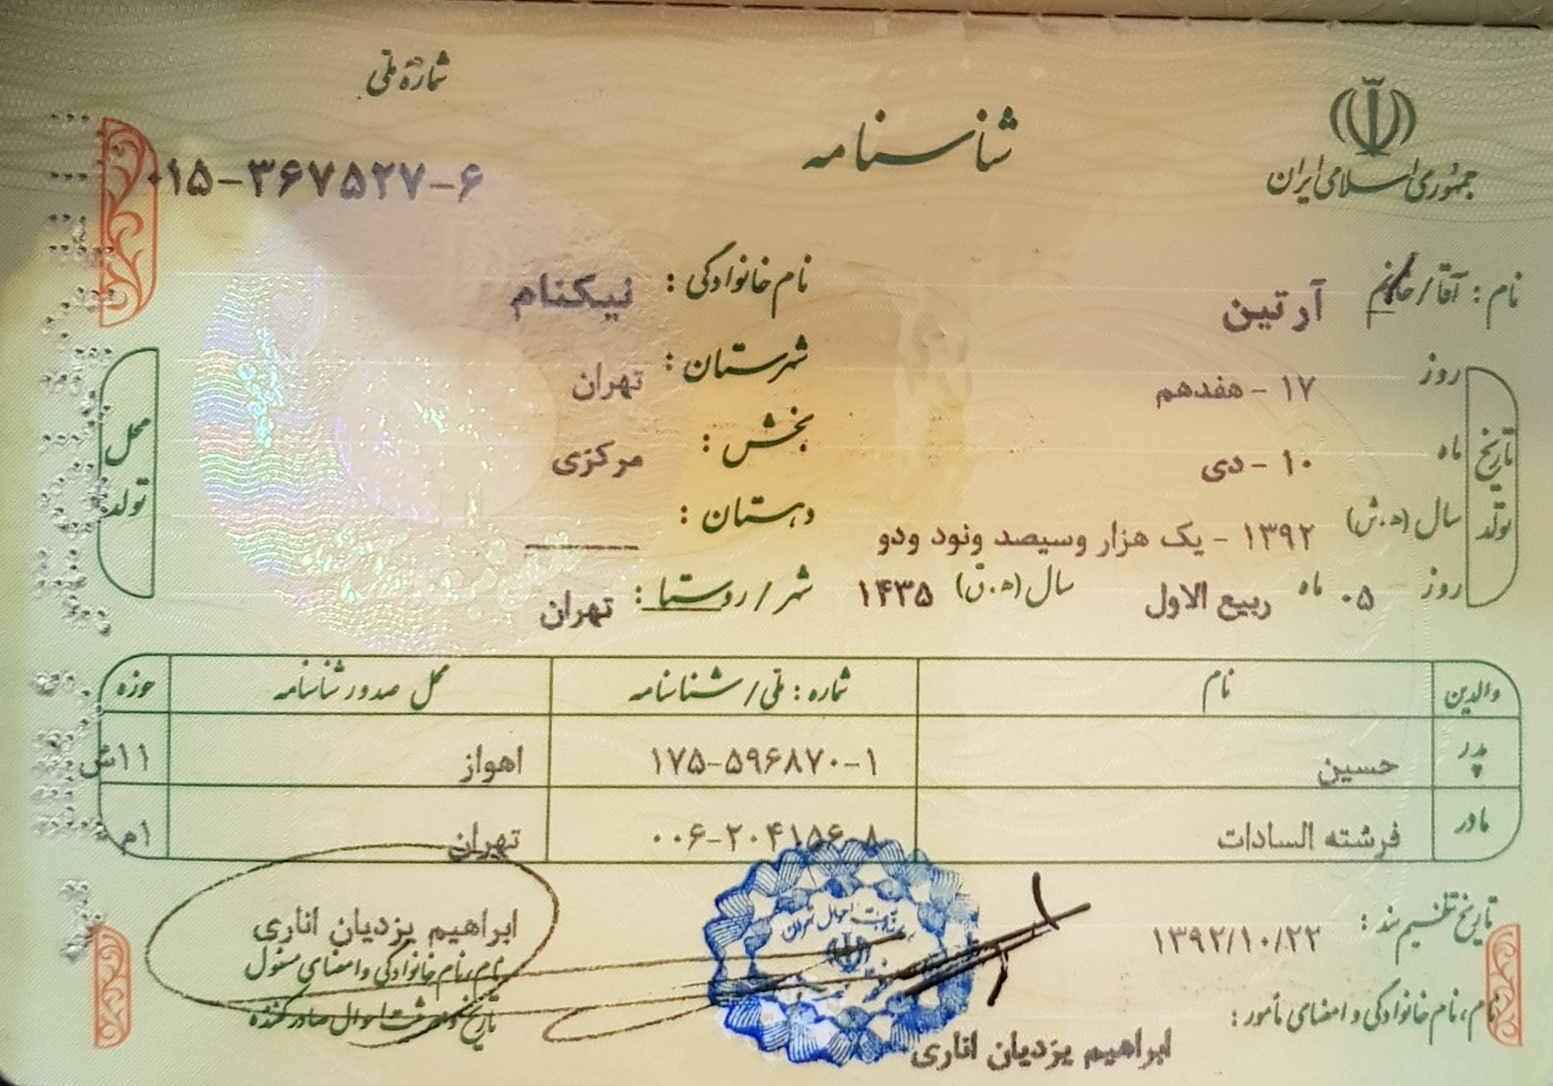 جمهوری اسلامی ایران
شناسنامه
شماره ملی
۰۱۵-۳۶۷۵۲۷-۶
نام : آقا/خانم آرتین
نام خانوادگی : نیکنام
تاریخ تولد
روز ۱۷ - هفدهم
ماه ۱۰ - دی
سال (ه.ش) ۱۳۹۲ - یک هزار وسیصد ونود ودو
روز ۰۵ ماه ربیع الاول سال (ه.ق) ۱۴۳۵
محل تولد
شهرستان : تهران
بخش : مرکزی
دهستان :
شهر / روستا : تهران
والدین نام شماره : ملی/شناسنامه محل صدور شناسنامه حوزه
پدر حسین ۱۷۵-۵۹۶۸۷۰-۱ اهواز ۱۱ش
مادر فرشته السادات ۰۰۶-۲۰۴۱۵۶-۸ تهران ۱م
تاریخ تنظیم سند : ۱۳۹۲/۱۰/۲۲
نام، نام خانوادگی و امضای مامور :
ابراهیم یزدیان اناری
ابراهیم یزدیان اناری
نام، نام خانوادگی و امضای مسئول
ثبت احوال تهران